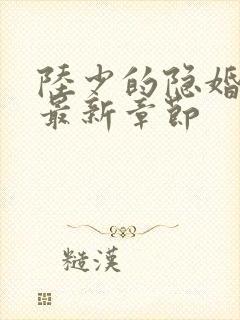 陸少的隐婚
最新章節
糙漢